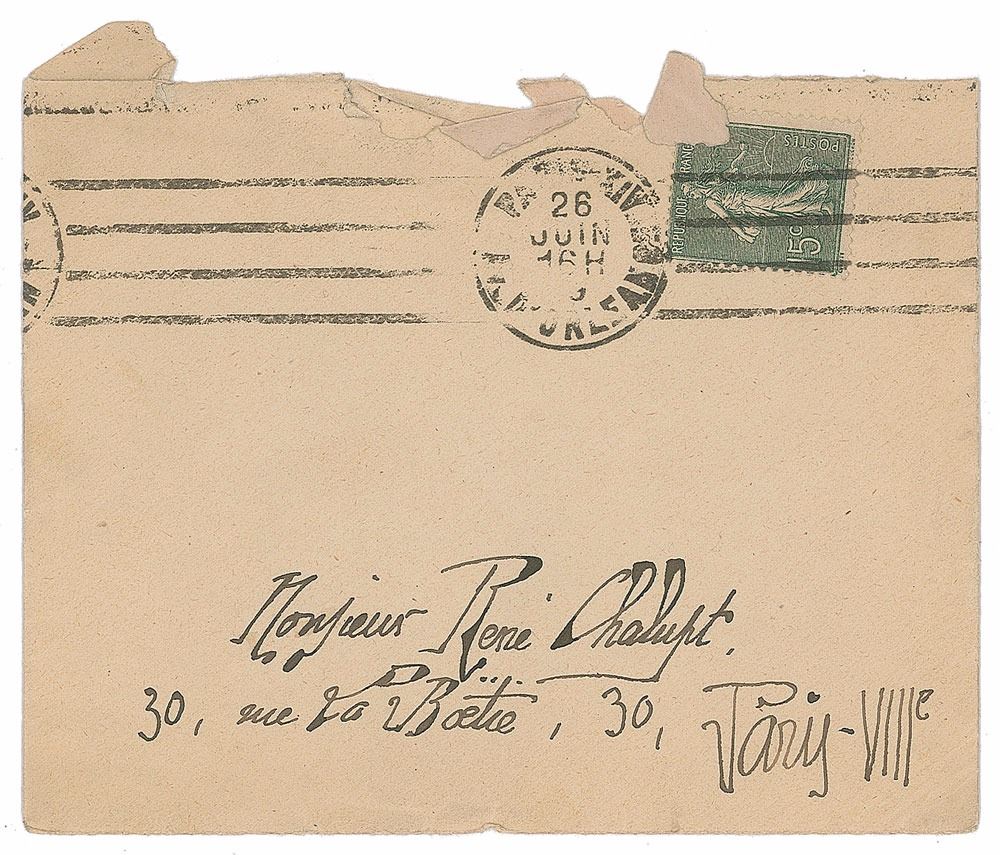 26
JUIN
16H
RÉPUBLIQUE FRANC
POSTES
15c
Monsieur René Chalupt.
30, rue La Boëtie, 30, Paris-VIIIe